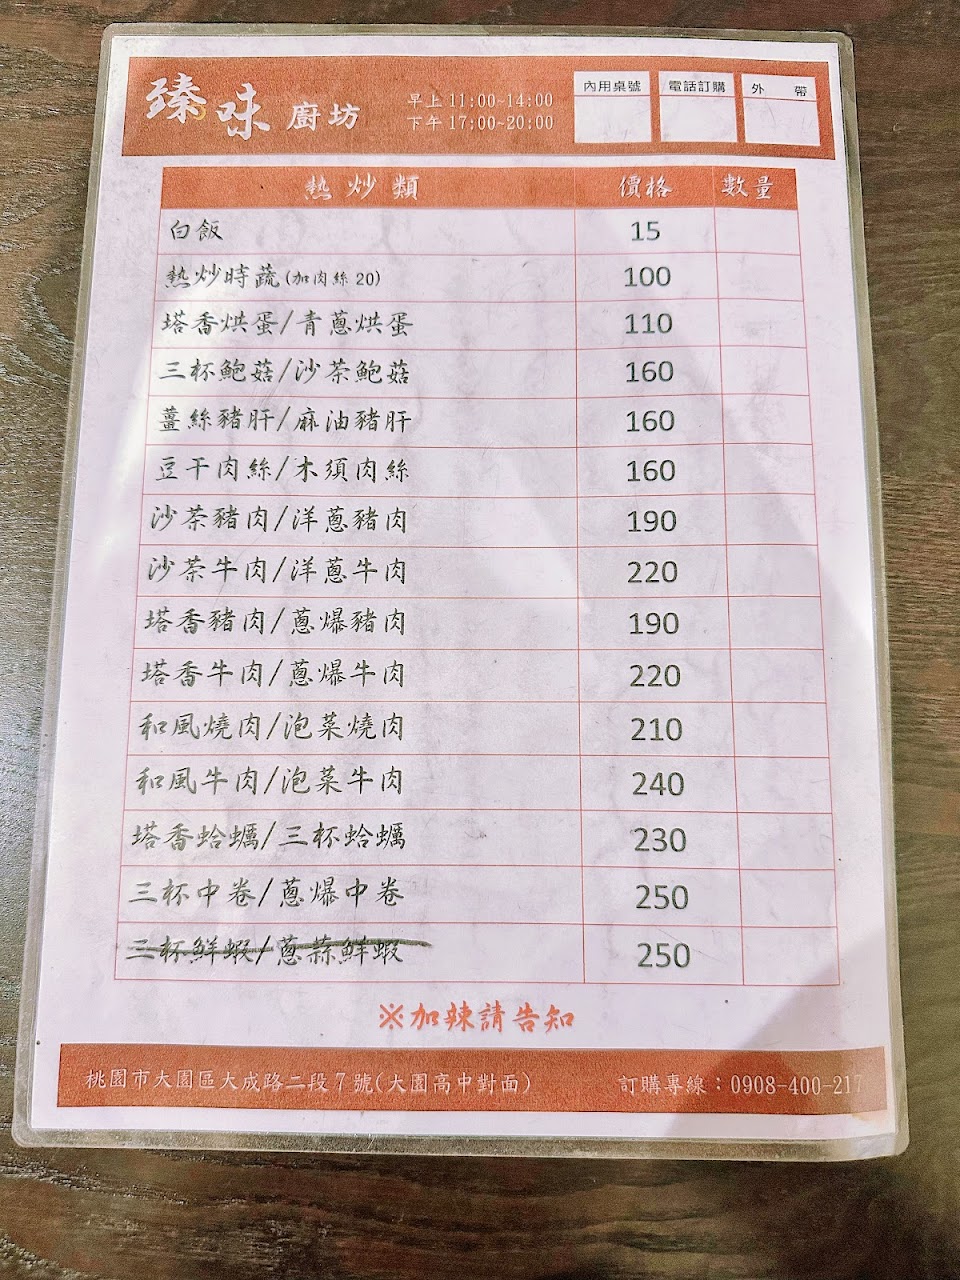 臻味廚坊
早上 11:00~14:00
下午 17:00~20:00
內用桌號
電話訂購
外 帶
熱炒類 價格 數量
白飯 15
熱炒時蔬(加肉絲 20) 100
塔香烘蛋/青蔥烘蛋 110
三杯鮑菇/沙茶鮑菇 160
薑絲豬肝/麻油豬肝 160
豆干肉絲/木須肉絲 160
沙茶豬肉/洋蔥豬肉 190
沙茶牛肉/洋蔥牛肉 220
塔香豬肉/蔥爆豬肉 190
塔香牛肉/蔥爆牛肉 220
和風燒肉/泡菜燒肉 210
和風牛肉/泡菜牛肉 240
塔香蛤蠣/三杯蛤蠣 230
三杯中卷/蔥爆中卷 250
三杯鮮蝦/蔥蒜鮮蝦 250
※加辣請告知
桃園市大園區大成路二段7號(大園高中對面) 訂購專線：0908-400-217